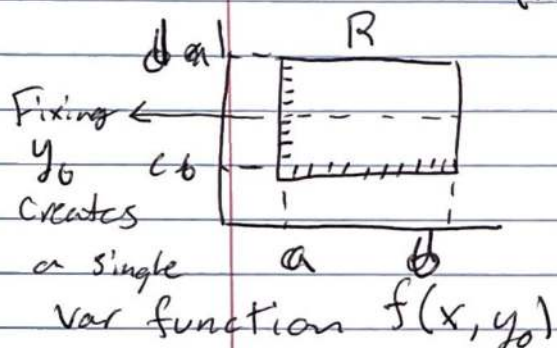 R
d
Fixing
y₀ c
creates
a b
a single
var function f(x, y₀)